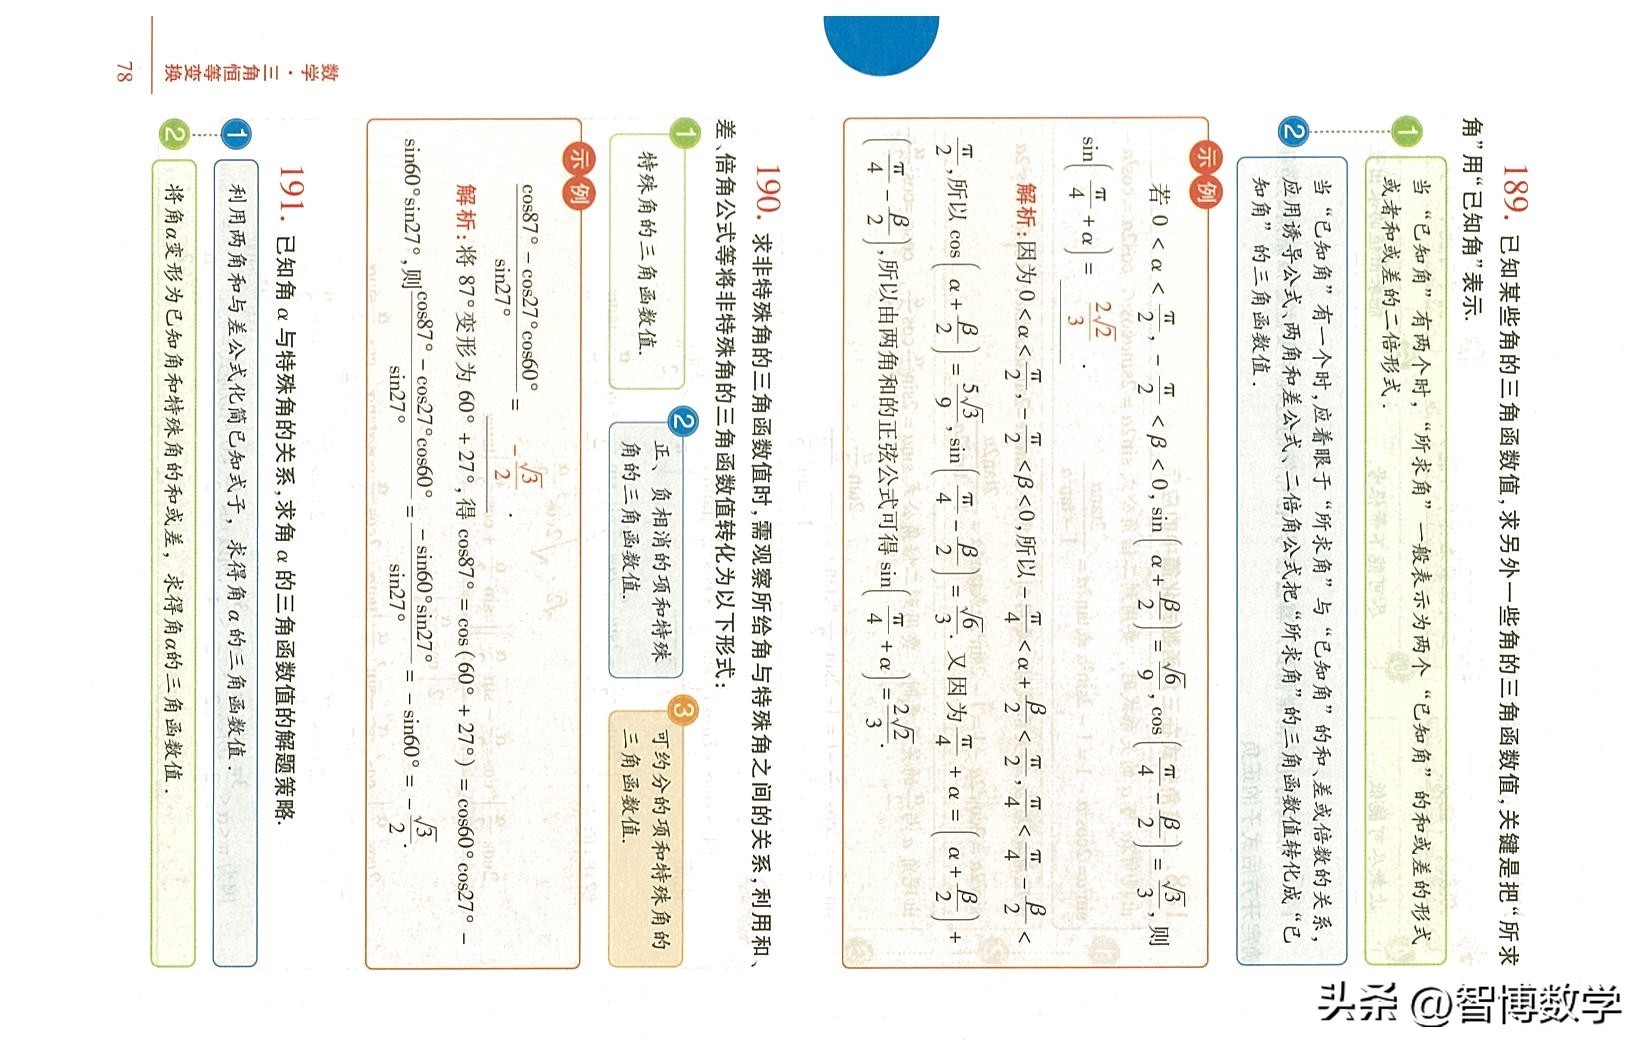 189. 已知某些角的三角函数值,求另外一些角的三角函数值,关键是把“所求
角”用“已知角”表示.
1 当“已知角”有两个时,“所求角”一般表示为两个“已知角”的和或差的形式
或者和或差的二倍形式.
2 当“已知角”有一个时,应着眼于“所求角”与“已知角”的和、差或倍数的关系,
应用诱导公式、两角和差公式、二倍角公式把“所求角”的三角函数值转化成“已
知角”的三角函数值.
示例
若 0 < α < π/2, - π/2 < β < 0, sin(α + β/2) = √6/9, cos(π/4 - β/2) = √3/3, 则
sin(π/4 + α) = 2√2/3 .
解析:因为 0 < α < π/2, - π/2 < β < 0, 所以 - π/4 < α + β/2 < π/2, π/4 < π/4 - β/2 <
π/2, 所以 cos(α + β/2) = 5√3/9, sin(π/4 - β/2) = √6/3. 又因为 π/4 + α = (α + β/2) +
(π/4 - β/2), 所以由两角和的正弦公式可得 sin(π/4 + α) = 2√2/3.
190. 求非特殊角的三角函数值时,需观察所给角与特殊角之间的关系,利用和、
差、倍角公式等将非特殊角的三角函数值转化为以下形式:
1 特殊角的三角函数值.
2 正、负相消的项和特殊
角的三角函数值.
3 可约分的项和特殊角的
三角函数值.
示例
(cos87° - cos27°cos60°)/sin27° = - √3/2 .
解析:将 87°变形为 60° + 27°, 得 cos87° = cos(60° + 27°) = cos60°cos27° -
sin60°sin27°, 则 (cos87° - cos27°cos60°)/sin27° = (- sin60°sin27°)/sin27° = - sin60° = - √3/2.
191. 已知角 α 与特殊角的关系,求角 α 的三角函数值的解题策略.
1 利用两角和与差公式化简已知式子,求得角 α 的三角函数值.
2 将角α变形为已知角和特殊角的和或差,求得角α的三角函数值.
数学·三角恒等变换
78
头条 @智博数学